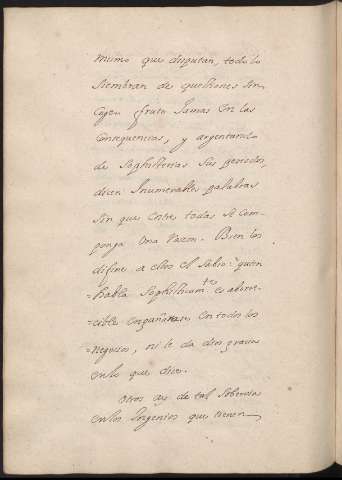 mismo que disputan, todo lo
siembran de questiones sin
coger fruto Jamas en las
Consequencias, y argentando
de Soghisterias sus periodos,
dicen Inumerables palabras
sin que entre todas se com-
ponga Una razon. Bien los
difine a ellos el Sabio: quien
=habla Soghisticam.te es aborre-
=cible engañarase en todos los
=negocios, ni le da dios gracia
en lo que dice.
Otros ay de tal soberbia
en los Ingenios que tienen